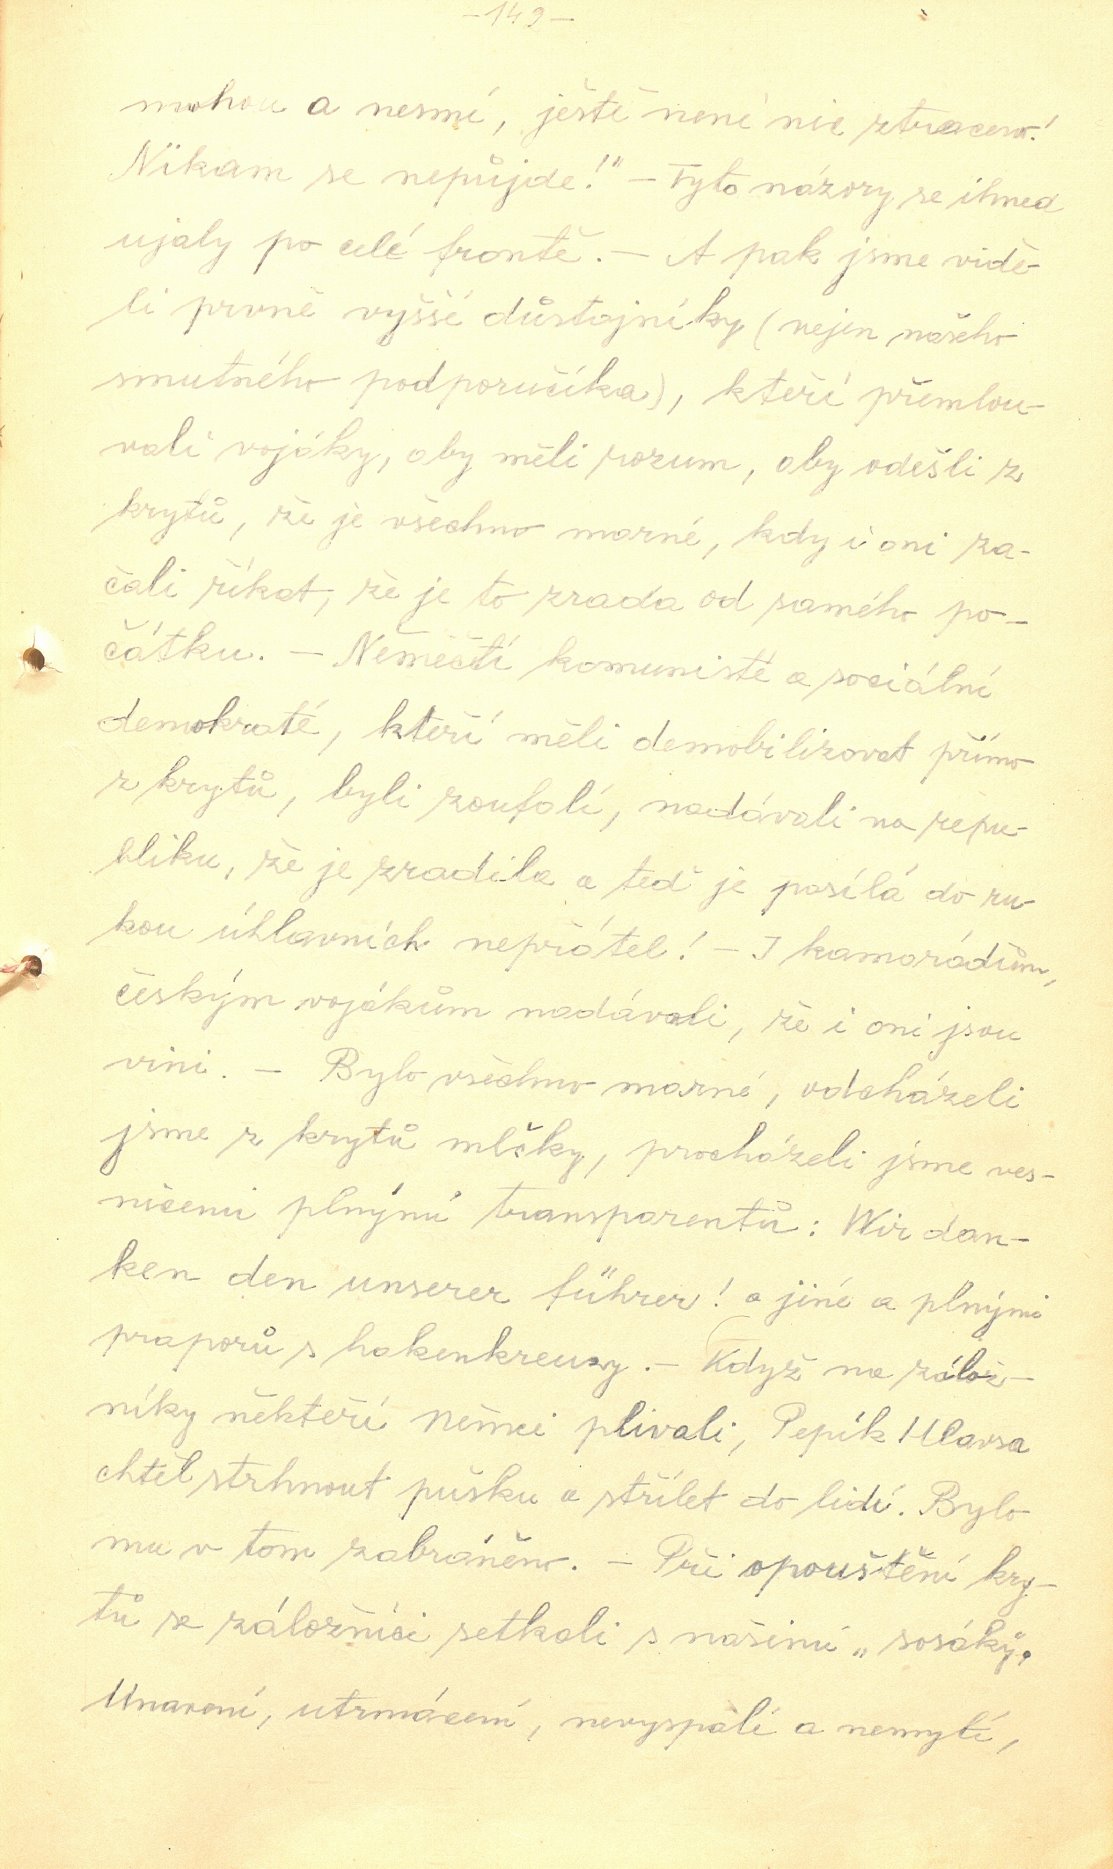 -149-
mohou a nesmí, ještě není nic ztraceno!
Nikam se nepůjde!" - Tyto názory se ihned
ujaly po celé frontě. - A pak jsme vidě-
li prvně vyšší důstojníky (nejen našeho
smutného podporučíka), kteří přemlou-
vali vojáky, aby měli rozum, aby odešli z
krytů, že je všechno marné, kdy i oni za-
čali říkat, že je to zrada od samého po-
čátku. - Němečtí komunisté a sociální
demokraté, kteří měli demobilizovat přímo
z krytů, byli zoufalí, nadávali na repu-
bliku, že je zradila a teď je posílá do ru-
kou úhlavních nepřátel! - I kamarádům,
českým vojákům nadávali, že i oni jsou
vini. - Bylo všechno marné, odcházeli
jsme z krytů mlčky, procházeli jsme ves-
nicemi plnými transparentů: Wir dan-
ken den unserer führer! a jiné a plnými
praporů s hakenkreuzy. - Když na zálož-
níky někteří němci plivali, Pepík Hlavsa
chtěl strhnout pušku a střílet do lidí. Bylo
mu v tom zabráněno. - Při opouštění kry-
tů se záložníci setkali s našimi "sosáky".
Unavení, utrmácení, nevyspalí a nemytí,